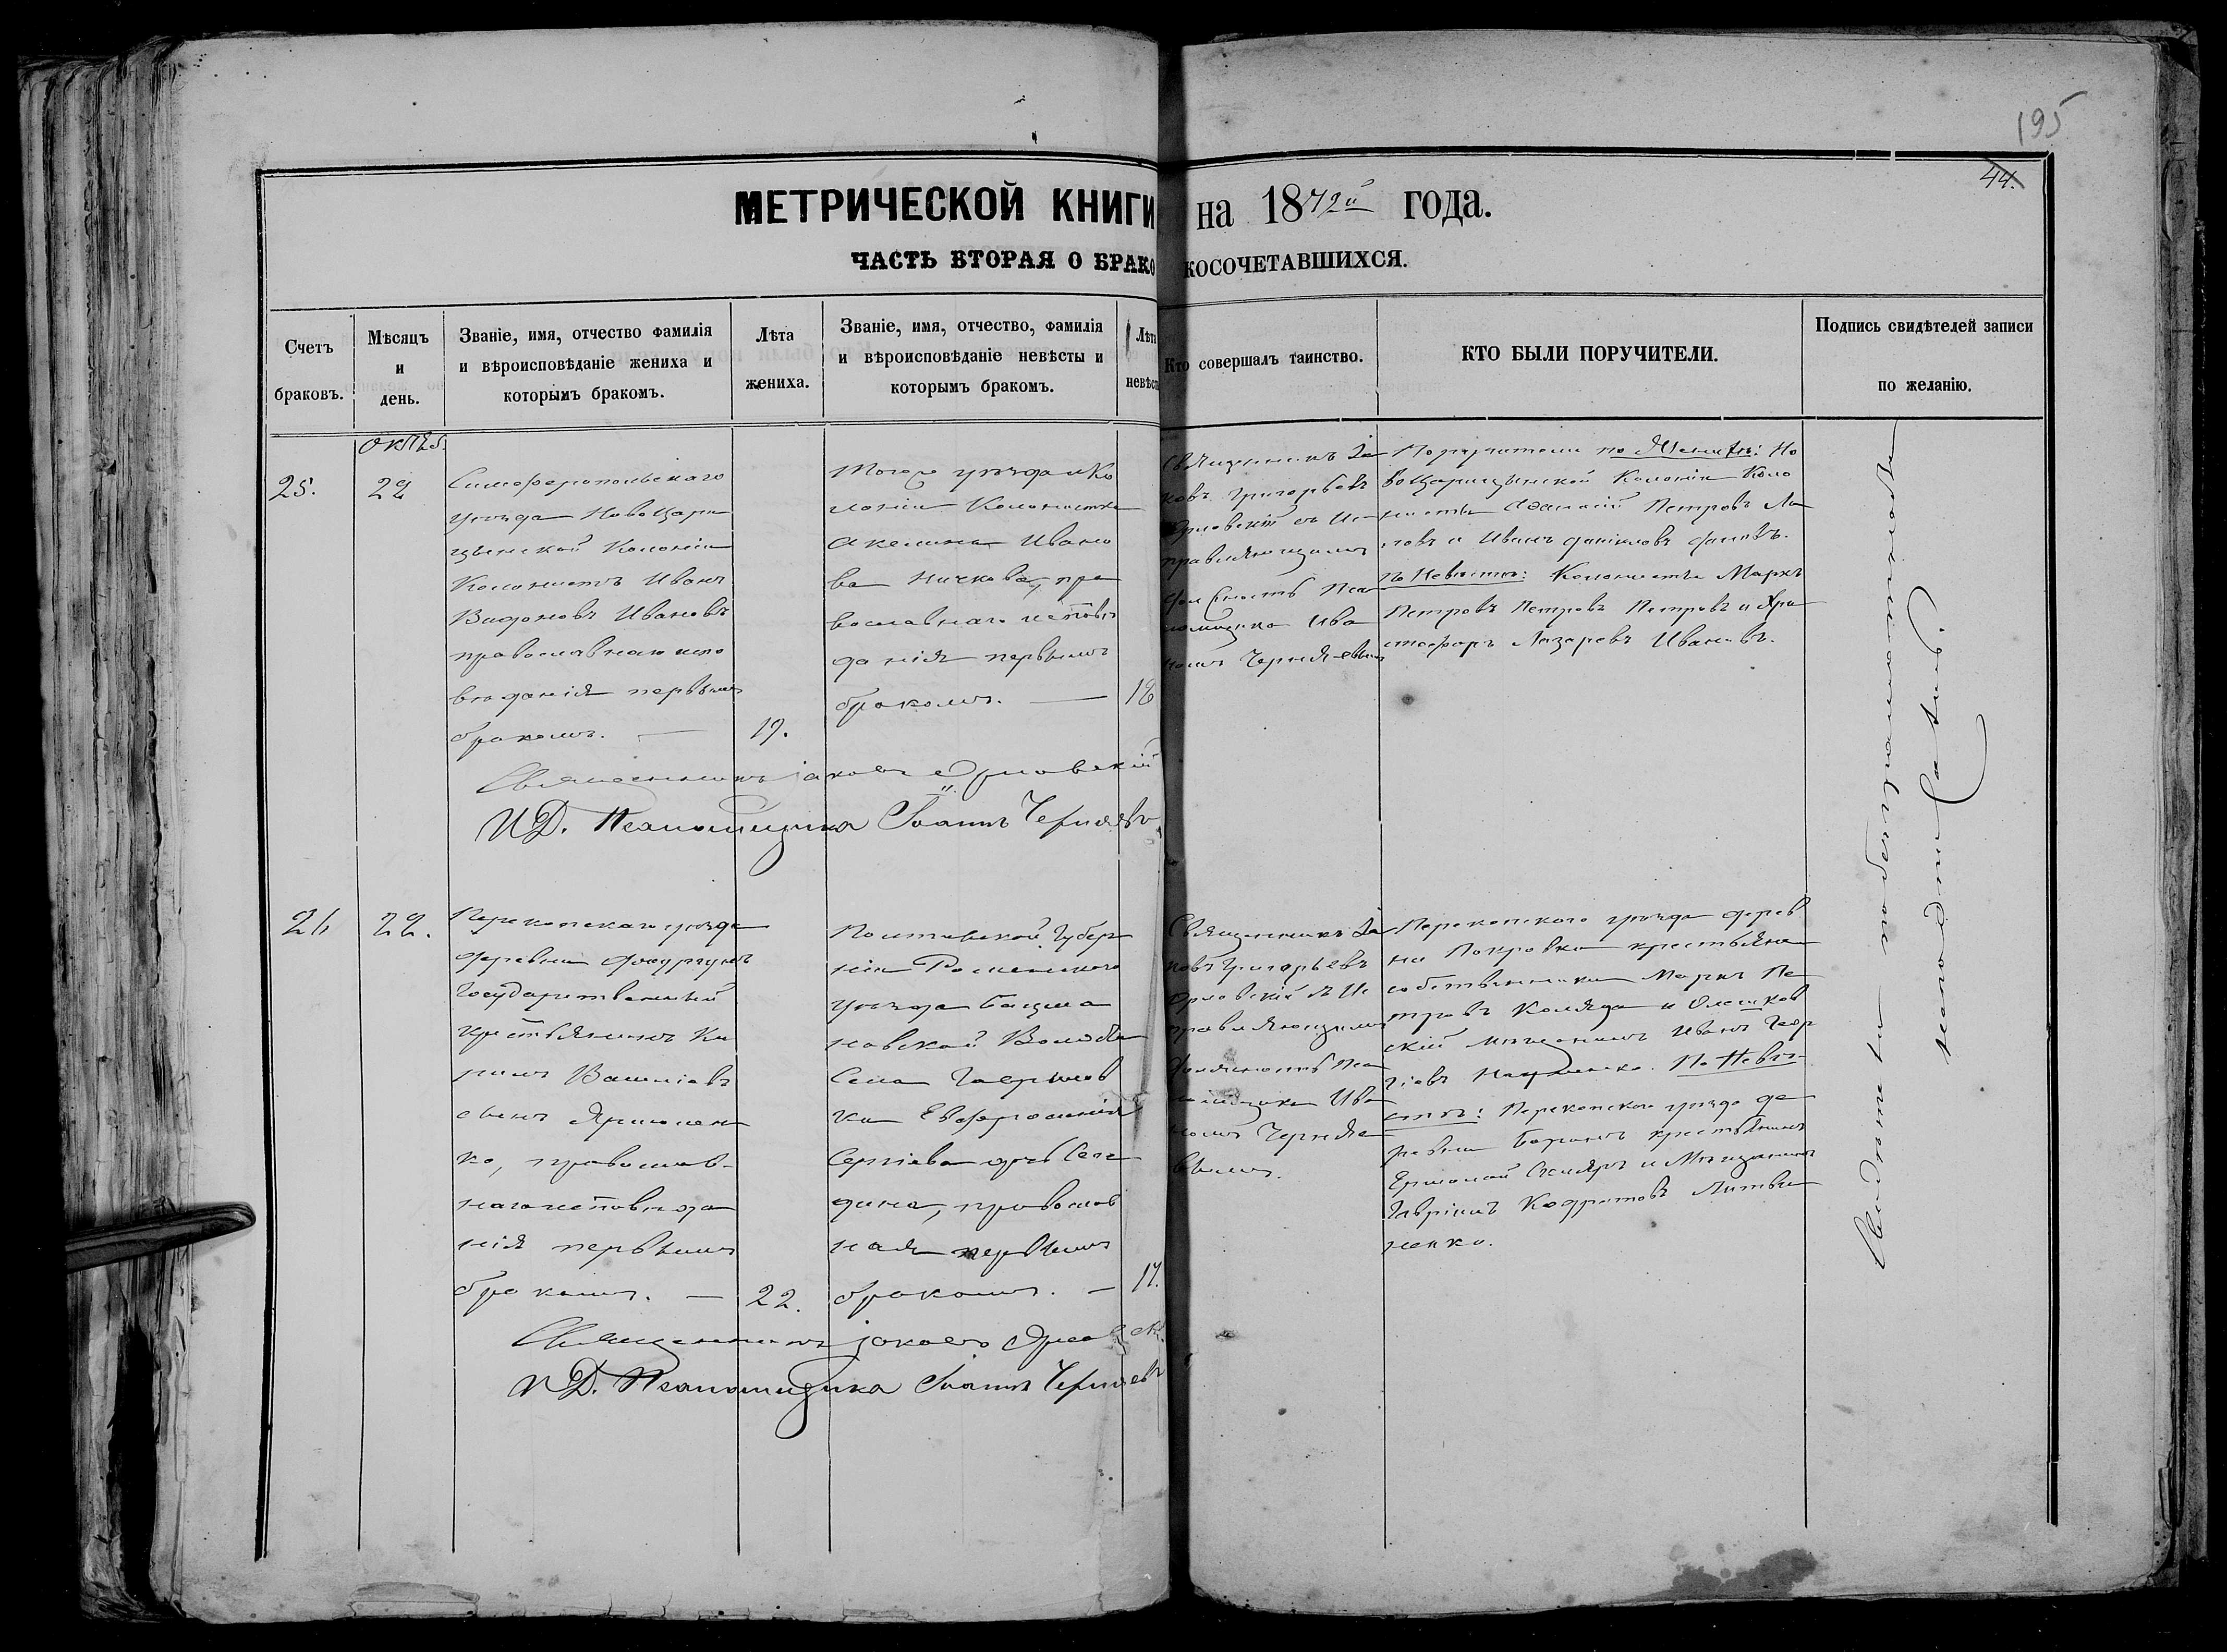 195
44.
МЕТРИЧЕСКОЙ КНИГИ на 1872й года.
ЧАСТЬ ВТОРАЯ О БРАКОСОЧЕТАВШИХСЯ.
Счетъ
браковъ.
Мѣсяцъ
и
день.
Званіе, имя, отчество фамилія
и вѣроисповѣданіе жениха и
которымъ бракомъ.
Лѣта
жениха.
Званіе, имя, отчество, фамилія
и вѣроисповѣданіе невѣсты и
которымъ бракомъ.
Лѣта
невѣс
Кто совершалъ таинство.
КТО БЫЛИ ПОРУЧИТЕЛИ.
Подпись свидѣтелей записи
по желанію.
25.
22
Симферопольскаго
уѣзда НовоЦари
цынской Колоніи
Колонистъ Иванъ
Ивановъ
православнаго испо
вѣданія первымъ
бракомъ. —
19.
Того уѣзда и Ко
лоніи Колонистка
Акелина Ивано
ва Ничкова, пра
вославнаго исповѣ
данія первымъ
бракомъ. —
18
Священникъ Іа
ковъ Григорьевъ
Орловскій съ Ис
правляющимъ
должность Пса
ломщика Ива
номъ Черняевымъ
Поручители по Женихѣ: Но
воЦарицынской Колоніи Коло
нисты Аѳанасій Петровъ
и Иванъ
По Невѣстѣ: Колонисты Маркъ
Петровъ Петровъ Петровъ и Хри
стофоръ Лазаревъ Ивановъ.
Священникъ Іаковъ Орловскій
И.Д. Псаломщика Іоаннъ Черняевъ
26
22.
Перекопскаго уѣзда
деревни
Государственный
крестьянинъ Ки
рилъ
сынъ Ярмолен
ко, православ-
наго исповѣда
нія первымъ
бракомъ. —
22.
Полтавской Губер
ніи Роменскаго
уѣзда
новской Волости
Села Гаврилов
ки Евфросинія
Сергіева дочь
дина, православ
ная первымъ
бракомъ. —
17.
Священникъ Іа
ковъ Григорьевъ
Орловскій съ Ис
правляющимъ
Должность Пса
ломщика Ива
номъ Черняе
вымъ.
Перекопскаго уѣзда дерев
ни Покровки крестьяне
собственники Маркъ Пе
тровъ Коляда и Олешков
скій мѣщанинъ Иванъ Геор
гіевъ Науменко. По Невѣ-
стѣ: Перекопскаго уѣзда де
ревни крестьянинъ
Ермолай и Мѣщанинъ
Гавріилъ Кодратовъ Литви
ненко.
Священникъ Іаковъ Орловск
И.Д. Псаломщика Іоаннъ Черняевъ
Свидѣтели по безграмотности